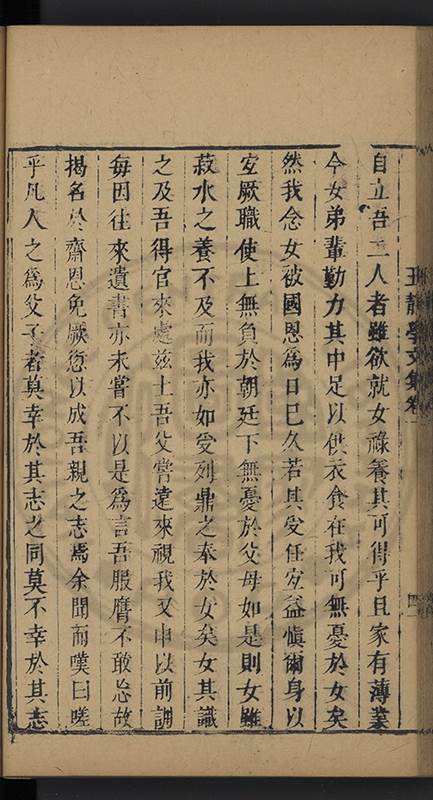 王靜學文集卷
自立吾二人者雖欲就女祿養其可得乎且家有薄業
今女弟輩勤力其中足以供衣食在我可無憂於女矣
然我念女被國恩為日已久若其受任宜益愼爾身以
宜厥職使上無負於朝廷下無憂於父母如是則女雖
菽水之養不及而我亦如受列鼎之奉於女矣女其識
之及吾得官來處茲土吾父嘗遠來視我又申以前訓
每因往來遺書亦未嘗不以是為言吾服膺不敢忘故
揭名於齋恩免厥愆以成吾親之志焉余聞而嘆曰嗟
乎凡人之為父子者莫幸於其志之同莫不幸於其志